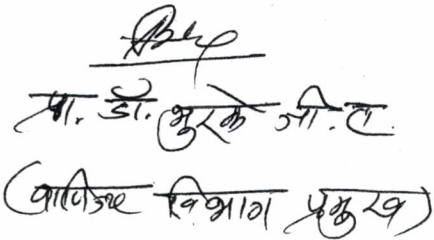 प्रा. डॉ. भुरके जी. ल.
(वाणिज्य विभाग प्रमुख)